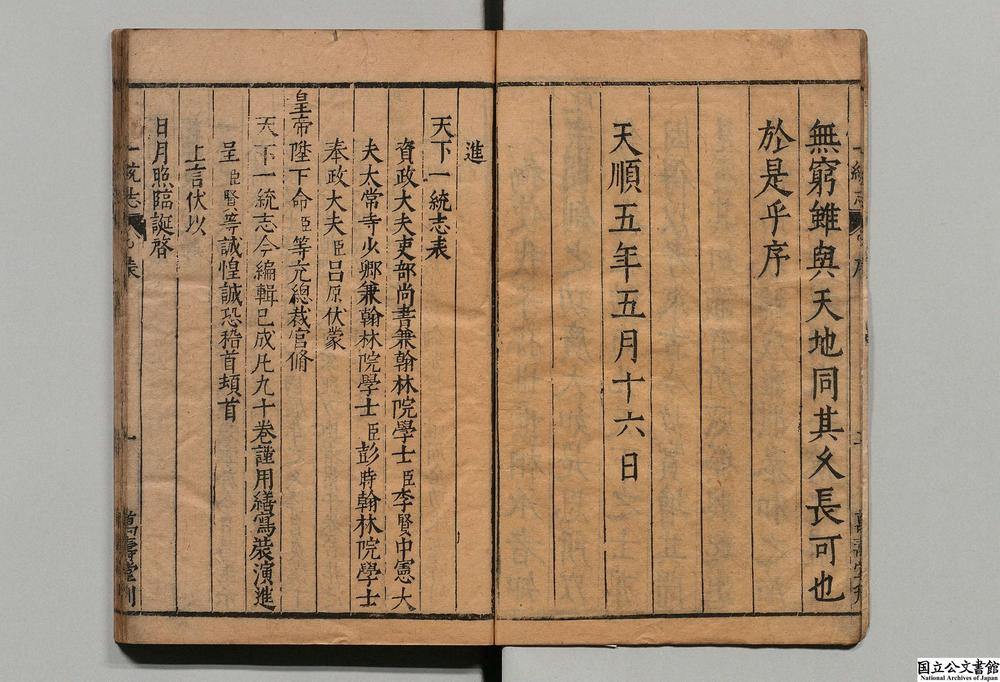 無窮雖與天地同其久長可也
於是乎序
天順五年五月十六日
進
天下一統志表
資政大夫吏部尚書兼翰林院學士臣李賢中憲大
夫太常寺少卿兼翰林院學士臣彭時翰林院學士
奉政大夫臣呂原伏蒙
皇帝陛下命臣等充總裁官脩
天下一統志今編輯已成凡九十卷謹用繕寫裝演進
呈臣賢等誠惶誠恐稽首頓首
上言伏以
日月照臨誕啓
一統志
表
一
萬壽堂刊
国立公文書館
National Archives of Japan